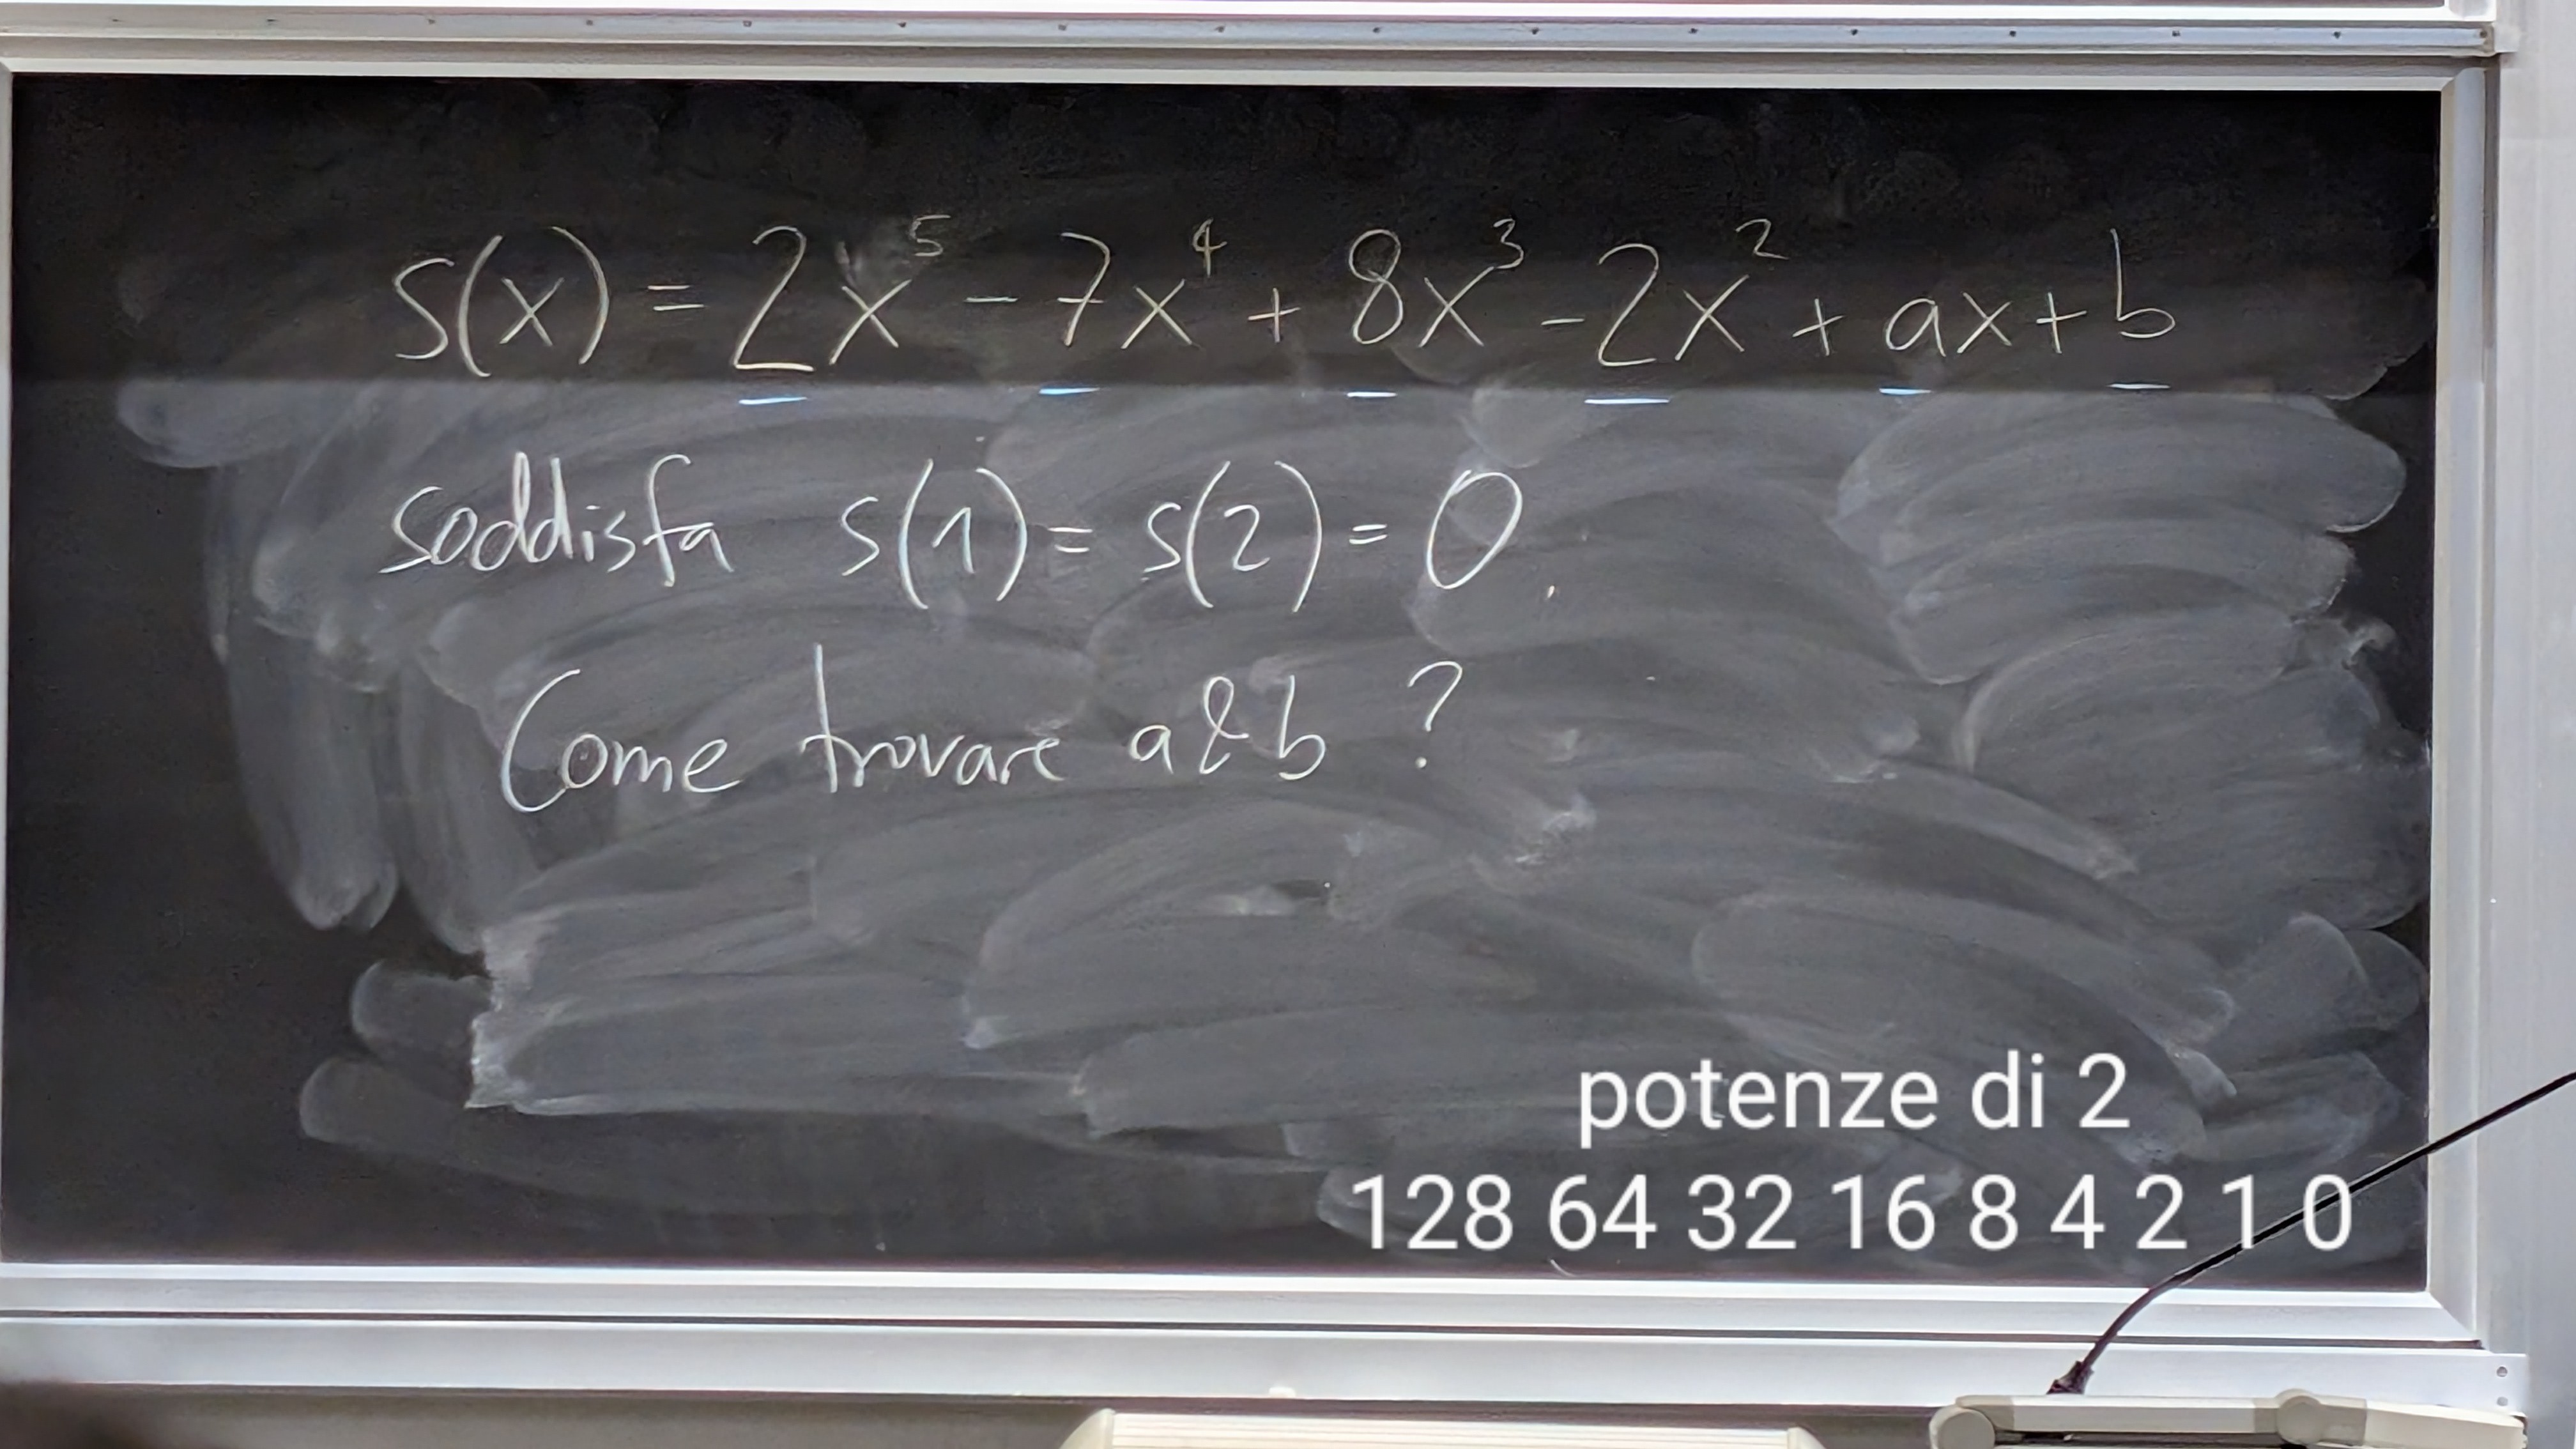 s(x) = 2x⁵ - 7x⁴ + 8x³ - 2x² + ax + b
soddisfa s(1) = s(2) = 0.
Come trovare a & b ?
potenze di 2
128 64 32 16 8 4 2 1 0